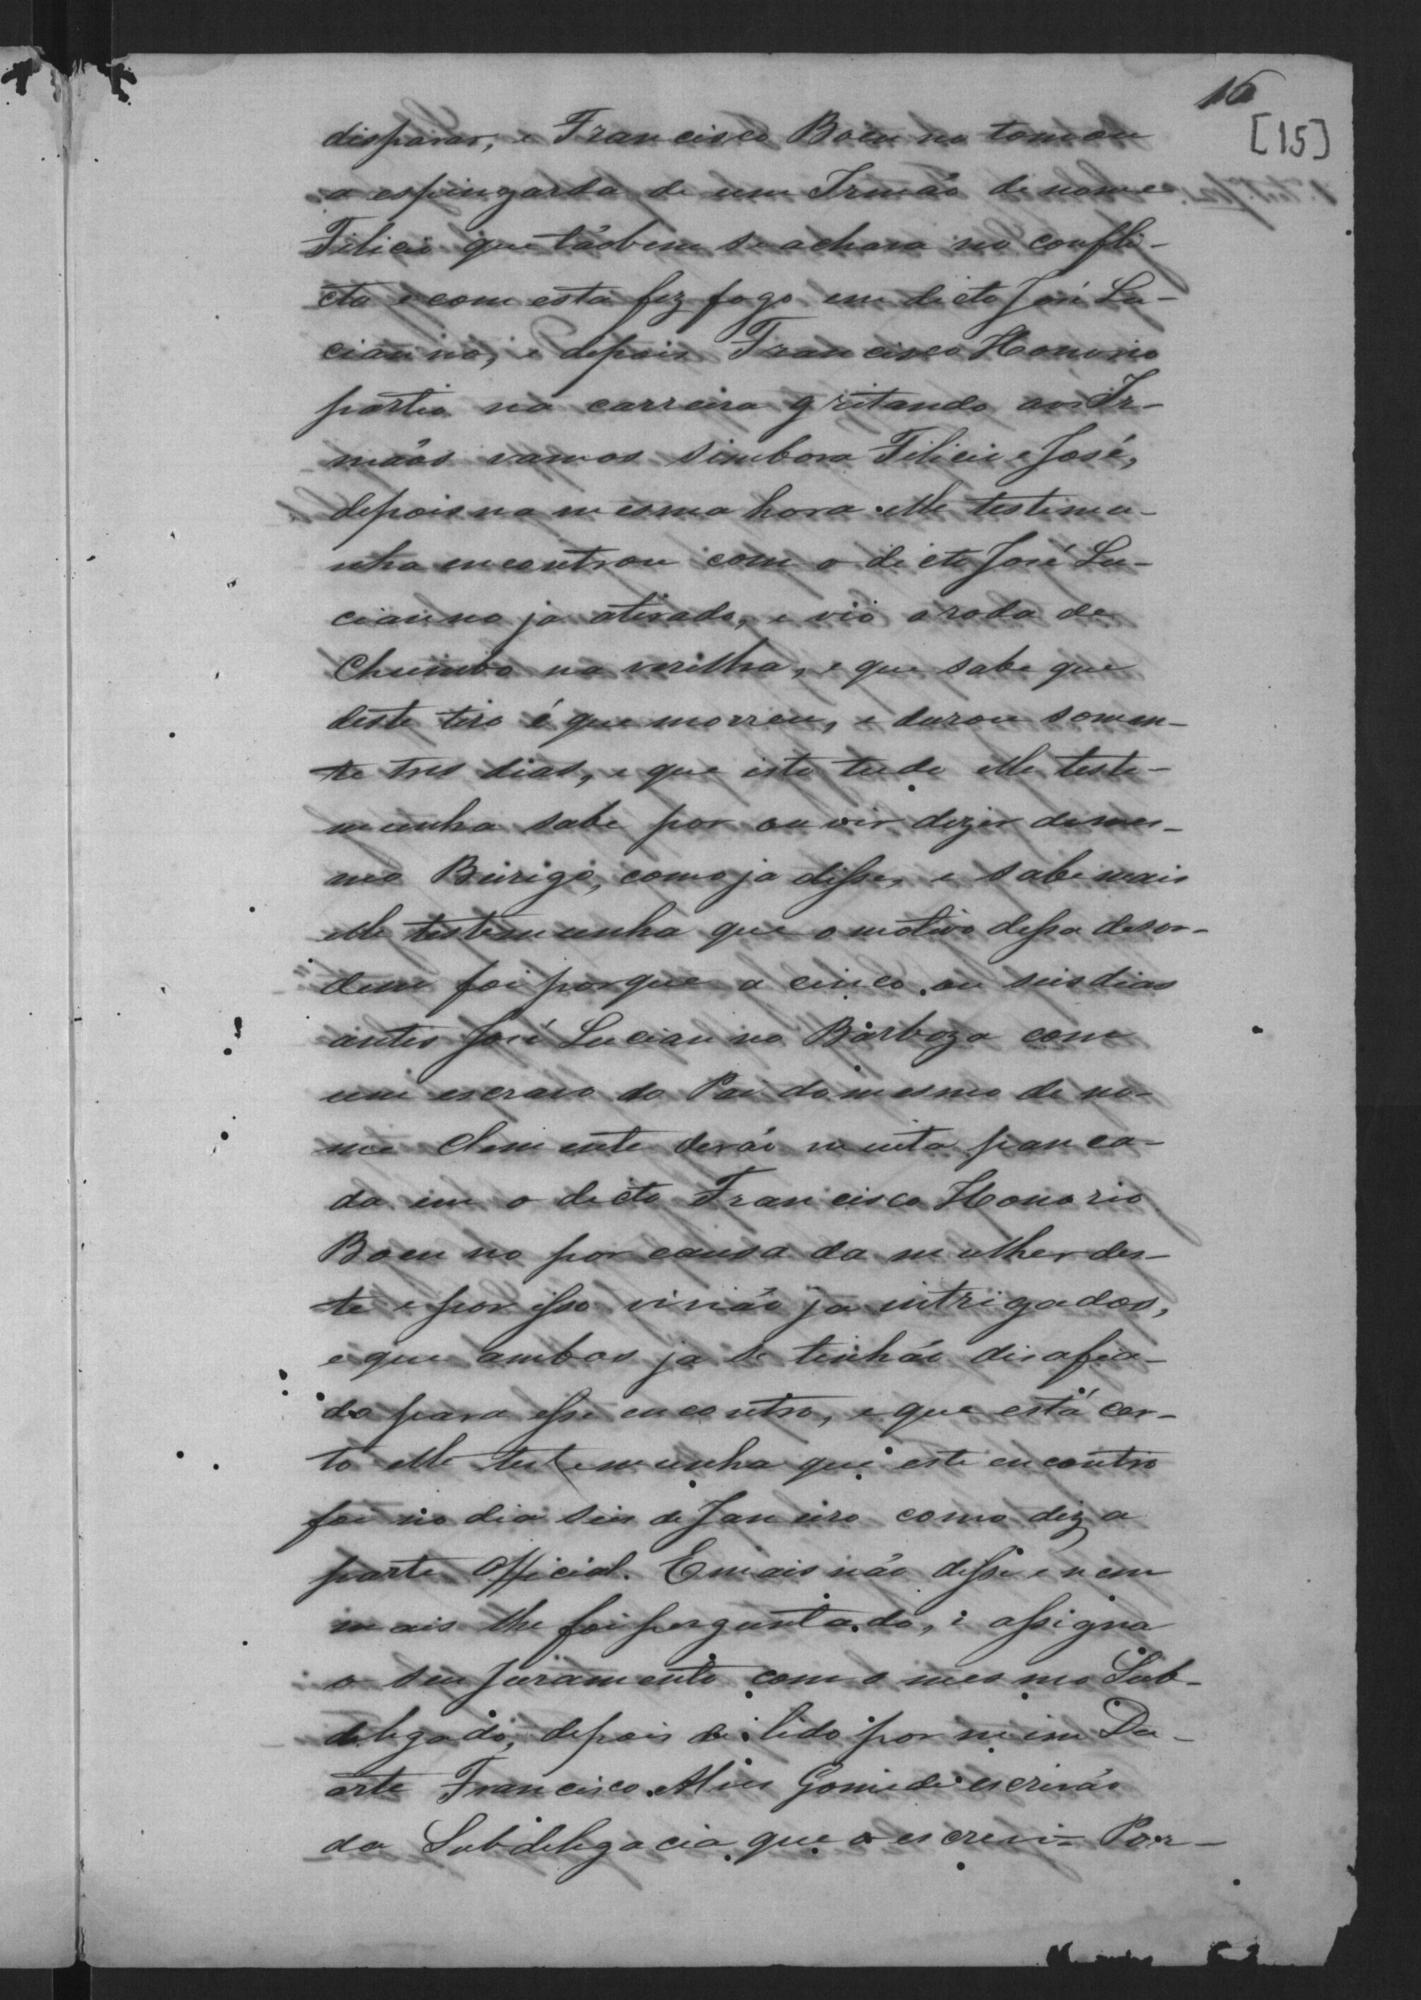 16
[15]
disparar, e Francisco Boeu no tomou
a espingarda de um Irmão de nome
Felicio que tãobem se achava no confli-
cto e com esta fez fogo em dicto José Lu-
cianno, e depois Francisco Honorio
partio na carreira gritando aos Ir-
mãos vamos simbora Felicio e José,
depois na mesma hora elle testimu-
nha encontrou com o dicto José Lu-
cianno já atirado, e vio a roda de
Chumbo na virilha, e que sabe que
deste tiro é que morreu, e durou somen-
te tres dias, e que isto tudo elle teste-
munha sabe por ouvir dizer do mes-
mo Burigo, como ja disse, e sabe mais
elle testemunha que o motivo dessa desor-
dem foi porque a cinco ou seis dias
antes José Lucianno Barboza com
um escravo do Pai do mesmo de no-
me Clemente derão muita panca-
da em o dicto Francisco Honorio
Boeu no por causa da mulher des-
te e por isso vivião ja intrigados,
e que ambos ja se tinhão disafia-
do para esse encontro, e que está cer-
to elle testemunha que este encontro
foi no dia seis de Janeiro como diz a
parte Official. E mais não disse e nem
mais lhe foi perguntado, e assigna
o seu juramento com o mesmo Sub-
delegado, depois de lido por mim Du-
arte Francisco Alves Gomide escrivão
da Subdelegacia que o escrevi = Por-